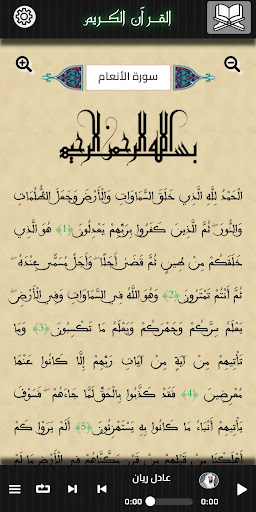 القرآن الكريم
سورة الأنعام
بسم الله الرحمن الرحيم
الْحَمْدُ لِلَّهِ الَّذِي خَلَقَ السَّمَاوَاتِ وَالْأَرْضَ وَجَعَلَ الظُّلُمَاتِ
وَالنُّورَ ۖ ثُمَّ الَّذِينَ كَفَرُوا بِرَبِّهِمْ يَعْدِلُونَ ﴿1﴾ هُوَ الَّذِي
خَلَقَكُمْ مِنْ طِينٍ ثُمَّ قَضَىٰ أَجَلًا ۖ وَأَجَلٌ مُسَمًّى عِنْدَهُ ۖ
ثُمَّ أَنْتُمْ تَمْتَرُونَ ﴿2﴾ وَهُوَ اللَّهُ فِي السَّمَاوَاتِ وَفِي الْأَرْضِ ۖ
يَعْلَمُ سِرَّكُمْ وَجَهْرَكُمْ وَيَعْلَمُ مَا تَكْسِبُونَ ﴿3﴾ وَمَا
تَأْتِيهِمْ مِنْ آيَةٍ مِنْ آيَاتِ رَبِّهِمْ إِلَّا كَانُوا عَنْهَا
مُعْرِضِينَ ﴿4﴾ فَقَدْ كَذَّبُوا بِالْحَقِّ لَمَّا جَاءَهُمْ ۖ فَسَوْفَ
يَأْتِيهِمْ أَنْبَاءُ مَا كَانُوا بِهِ يَسْتَهْزِئُونَ ﴿5﴾ أَلَمْ يَرَوْا كَمْ
أَهْلَكْنَا مِنْ قَبْلِهِمْ مِنْ قَرْنٍ مَكَّنَّاهُمْ فِي الْأَرْضِ مَا لَمْ
عادل ريان
0:00 0:00